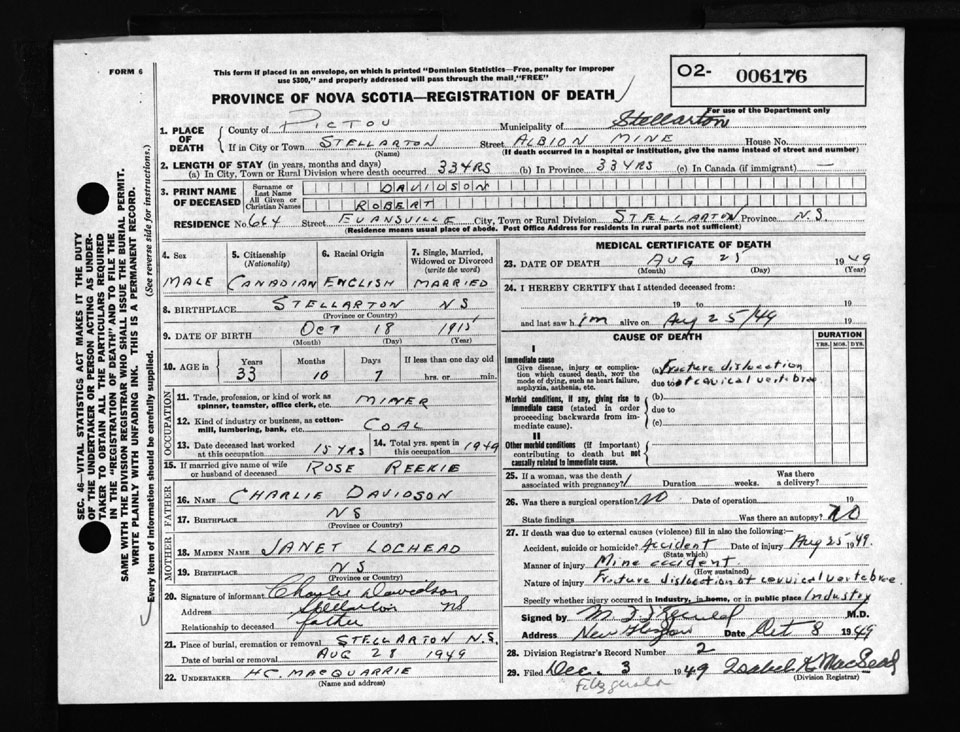 FORM 6
This form if placed in an envelope, on which is printed "Dominion Statistics—Free, penalty for improper
use $300," and properly addressed will pass through the mail, "FREE"
PROVINCE OF NOVA SCOTIA—REGISTRATION OF DEATH
O2- 006176
For use of the Department only
1. PLACE OF DEATH
County of PICTOU Municipality of Stellarton
If in City or Town STELLARTON Street ALBION MINE House No.
(Name) (If death occurred in a hospital or institution, give the name instead of street and number)
2. LENGTH OF STAY (in years, months and days)
(a) In City, Town or Rural Division where death occurred 33YRS (b) In Province 33YRS (c) In Canada (if immigrant) —
3. PRINT NAME OF DECEASED
Surname or Last Name DAVIDSON
All Given or Christian Names ROBERT
RESIDENCE No. 664 Street EVANSVILLE City, Town or Rural Division STELLARTON Province N.S.
(Residence means usual place of abode. Post Office Address for residents in rural parts not sufficient)
4. Sex 5. Citizenship (Nationality) 6. Racial Origin 7. Single, Married, Widowed or Divorced (write the word)
MALE CANADIAN ENGLISH MARRIED
8. BIRTHPLACE STELLARTON NS
(Province or Country)
9. DATE OF BIRTH OCT 18 1915
(Month) (Day) (Year)
10. AGE in Years Months Days If less than one day old
33 10 7 hrs. or min.
OCCUPATION
11. Trade, profession, or kind of work as
spinner, teamster, office clerk, etc. MINER
12. Kind of industry or business, as cotton-
mill, lumbering, bank, etc. COAL
13. Date deceased last worked at this occupation 15 YRS 14. Total yrs. spent in this occupation 1949
15. If married give name of wife or husband of deceased ROSE REEKIE
FATHER
16. NAME CHARLIE DAVIDSON
17. BIRTHPLACE NS
(Province or Country)
MOTHER
18. MAIDEN NAME JANET LOCHEAD
19. BIRTHPLACE NS
(Province or Country)
20. Signature of informant Charlie Davidson
Address Stellarton NS
Relationship to deceased father
21. Place of burial, cremation or removal STELLARTON N.S.
Date of burial or removal AUG 28 1949
22. UNDERTAKER H.C. MACQUARRIE
(Name and address)
MEDICAL CERTIFICATE OF DEATH
23. DATE OF DEATH AUG 25 1949
(Month) (Day) (Year)
24. I HEREBY CERTIFY that I attended deceased from:
19 to 19
and last saw him alive on Aug 25/49 19
CAUSE OF DEATH DURATION
YRS. MOS. DYS.
I
Immediate cause
Give disease, injury or complication which caused death, NOT the mode of dying, such as heart failure, asphyxia, asthenia, etc.
(a) Fracture dislocation
due to of cervical vertebrae
Morbid conditions, if any, giving rise to immediate cause (stated in order proceeding backwards from immediate cause).
(b)
due to
(c)
II
Other morbid conditions (if important) contributing to death but not causally related to immediate cause.
25. If a woman, was the death associated with pregnancy? Duration weeks. Was there a delivery?
26. Was there a surgical operation? NO Date of operation 19
State findings Was there an autopsy? NO
27. If death was due to external causes (violence) fill in also the following:—
Accident, suicide or homicide? Accident Date of injury Aug 25 1949.
(State which)
Manner of injury Mine accident.
(How sustained)
Nature of injury Fracture dislocation of cervical vertebrae.
Specify whether injury occurred in industry, in home, or in public place Industry
Signed by M.D.
Address New Glasgow Date Oct 8 1949
28. Division Registrar's Record Number 2
29. Filed Dec. 3 1949 Isabel K MacBean
(Division Registrar)
Fitzgerald
SEC. 46—VITAL STATISTICS ACT MAKES IT THE DUTY
OF THE UNDERTAKER OR PERSON ACTING AS UNDER-
TAKER TO OBTAIN ALL THE PARTICULARS REQUIRED
IN THE "REGISTRATION OF DEATH" AND TO FILE THE
SAME WITH THE DIVISION REGISTRAR WHO SHALL ISSUE THE BURIAL PERMIT.
WRITE PLAINLY WITH UNFADING INK. THIS IS A PERMANENT RECORD.
Every item of information should be carefully supplied. (See reverse side for instructions.)